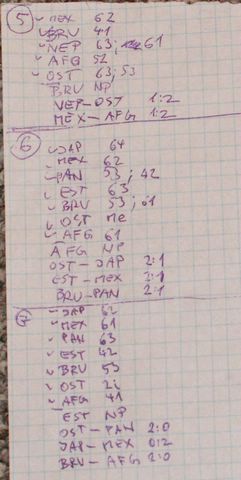 5 ✓ MEX 62
✓ BRU 41
✓ NEP 63; 61
✓ AFG 52
✓ OST 63; 53
BRU NP
NEP-OST 1:2
MEX-AFG 1:2
6
✓ JAP 64
✓ MEX 62
✓ PAN 53; 42
✓ EST 63
✓ BRU 53; 61
✓ OST me
✓ AFG 61
AFG NP
OST-JAP 2:1
EST-MEX 2:1
BRU-PAN 2:1
7
✓ JAP 62
✓ MEX 61
✓ PAN 63
✓ EST 42
✓ BRU 53
✓ OST 2i
✓ AFG 41
EST NP
OST-PAN 2:0
JAP-MEX 0:2
BRU-AFG 2:0